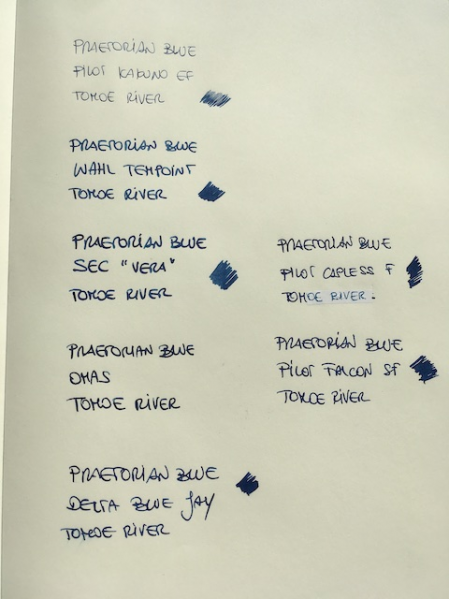 PRAETORIAN BLUE
PILOT KAKUNO EF
TOMOE RIVER
PRAETORIAN BLUE
WAHL TEMPOINT
TOMOE RIVER
PRAETORIAN BLUE
SEC "VERA"
TOMOE RIVER
PRAETORIAN BLUE
PILOT CAPLESS F
TOMOE RIVER.
PRAETORIAN BLUE
OMAS
TOMOE RIVER
PRAETORIAN BLUE
PILOT FALCON SF
TOMOE RIVER
PRAETORIAN BLUE
DELTA BLUE JAY
TOMOE RIVER